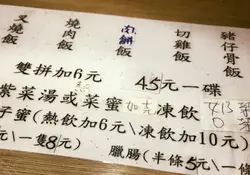 叉燒飯 燒肉飯 肉餅飯 切雞飯 豬仔骨飯
雙拼加6元 45元一碟
紫菜湯或菜蜜 加元 凍飲
子蜜(熱飲加6元\凍飲加10元)
\一隻8元) 臘腸(半條5元\一條